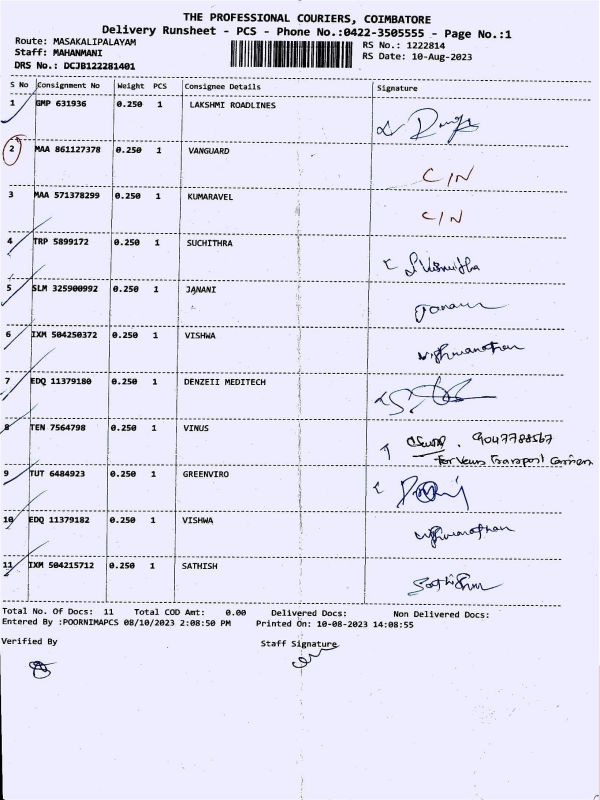 THE PROFESSIONAL COURIERS, COIMBATORE
Delivery Runsheet - PCS - Phone No.:0422-3505555 - Page No.:1
Route: MASAKALIPALAYAM
RS No.: 1222814
Staff: MAHANMANI
RS Date: 10-Aug-2023
DRS No.: DCJB122281401
S No Consignment No Weight PCS Consignee Details Signature
1 GMP 631936 0.250 1 LAKSHMI ROADLINES
2 MAA 861127378 0.250 1 VANGUARD
C/N
3 MAA 571378299 0.250 1 KUMARAVEL
C/N
4 TRP 5899172 0.250 1 SUCHITHRA
5 SLM 325900992 0.250 1 JANANI
Janani
6 IXM 504250372 0.250 1 VISHWA
Vishwanathan
7 EDQ 11379180 0.250 1 DENZEII MEDITECH
8 TEN 7564798 0.250 1 VINUS
9047788567
for Transport Carriers
9 TUT 6484923 0.250 1 GREENVIRO
10 EDQ 11379182 0.250 1 VISHWA
Vishwanathan
11 IXM 504215712 0.250 1 SATHISH
Total No. Of Docs: 11 Total COD Amt: 0.00 Delivered Docs: Non Delivered Docs:
Entered By :POORNIMAPCS 08/10/2023 2:08:50 PM Printed On: 10-08-2023 14:08:55
Verified By Staff Signature